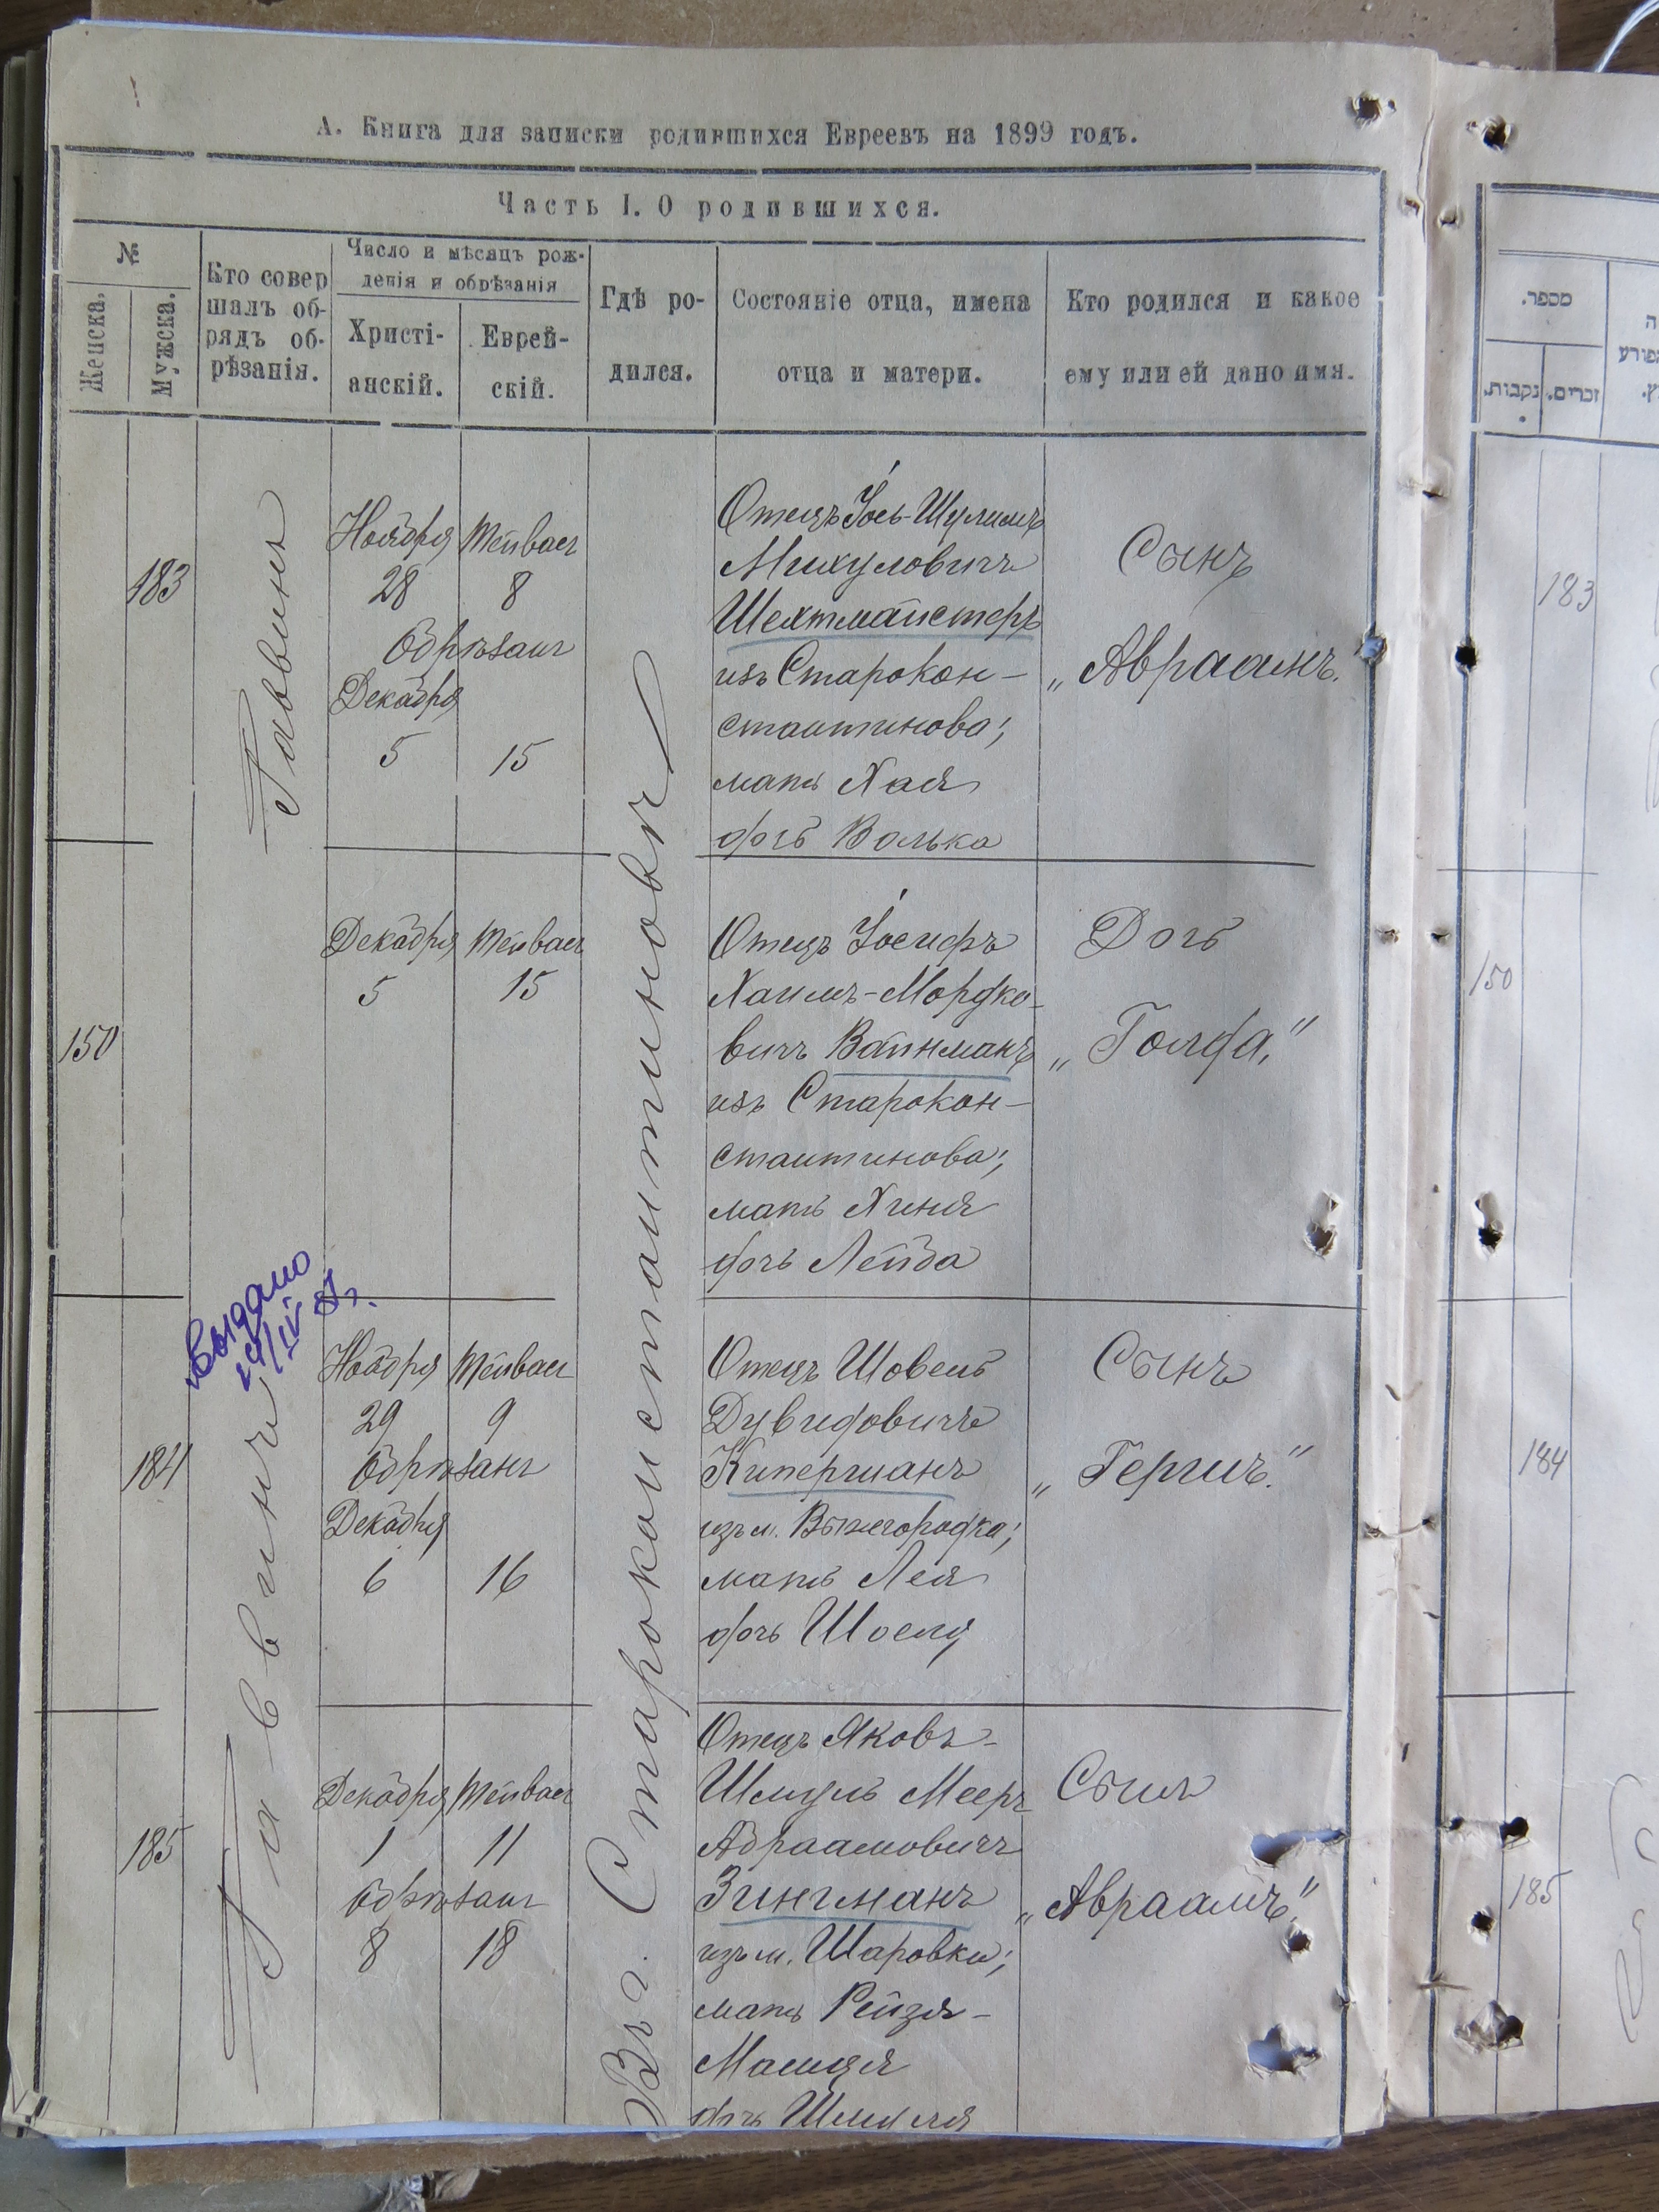 А. Книга для записки родившихся Евреевъ на 1899 годъ.
Часть I. О родившихся.
№
Женска.
Мужска.
Кто совер
шалъ об-
рядъ об-
рѣзанія.
Число и мѣсяцъ рож-
денія и обрѣзанія
Христі-
анскій.
Еврей-
скій.
Гдѣ ро-
дился.
Состояніе отца, имена
отца и матери.
Кто родился и какое
ему или ей дано имя.
183
Раввинъ
Ноября Тейваса
28 8
Обрѣзанъ
Декабря
5 15
Въ г. Староконстантиновѣ
Отецъ Іось-Шулимъ
Михуловичъ
Шехтмайстеръ
изъ Старокон-
стантинова;
мать Хая
дочь Волька
Сынъ
„Авраамъ."
150
Декабря Тейваса
5 15
Отецъ Іосифъ
Хаимъ-Мордко-
вичъ Вайнманъ
изъ Старокон-
стантинова;
мать Хиня
дочь Лейба
Дочь
„Голда."
Выдано
184
Раввинъ
Ноября Тейваса
29 9
Обрѣзанъ
Декабря
6 16
Отецъ Шовель
Дувидовичъ
Кипергманъ
изъ м. Вышегородка;
мать Лея
дочь Шоеля
Сынъ
„Гершъ."
185
Декабря Тейваса
1 11
Обрѣзанъ
8 18
Отецъ Яковъ-
Шмуль Мееръ
Абраамовичъ
Зингманъ
изъ м. Шаровки;
мать Рейзя-
Машця
дочь Шмуля
Сынъ
„Авраамъ."
מספר.
נקבות.
זכרים.
183
150
184
185